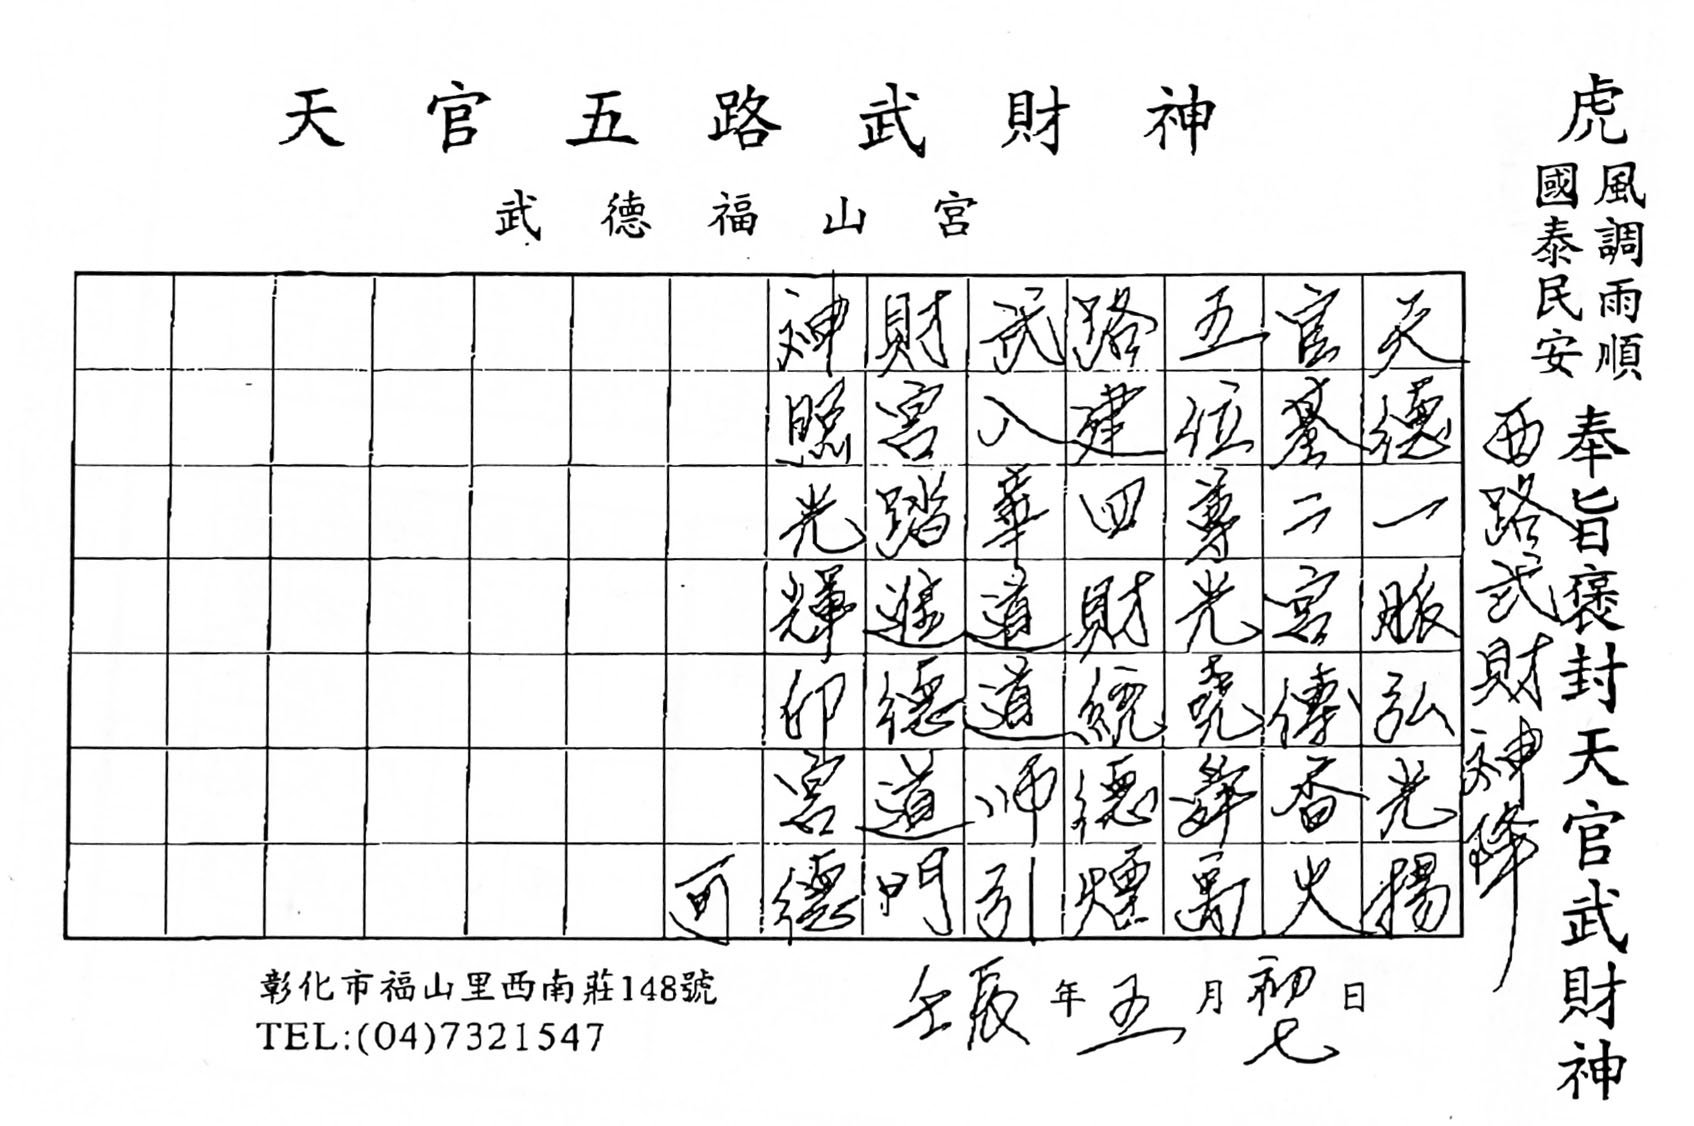 天官五路武財神
武德福山宮
虎
風調雨順
國泰民安
奉旨褒封天官武財神
西路武財神降
天德一脈弘光揚
官基二宮傳香火
五位尊光堯舜禹
路建四財統德煙
武入華道道師引
財宮踏進德道門
神照光輝卯宮德
可
壬辰年五月初七日
彰化市福山里西南莊148號
TEL:(04)7321547